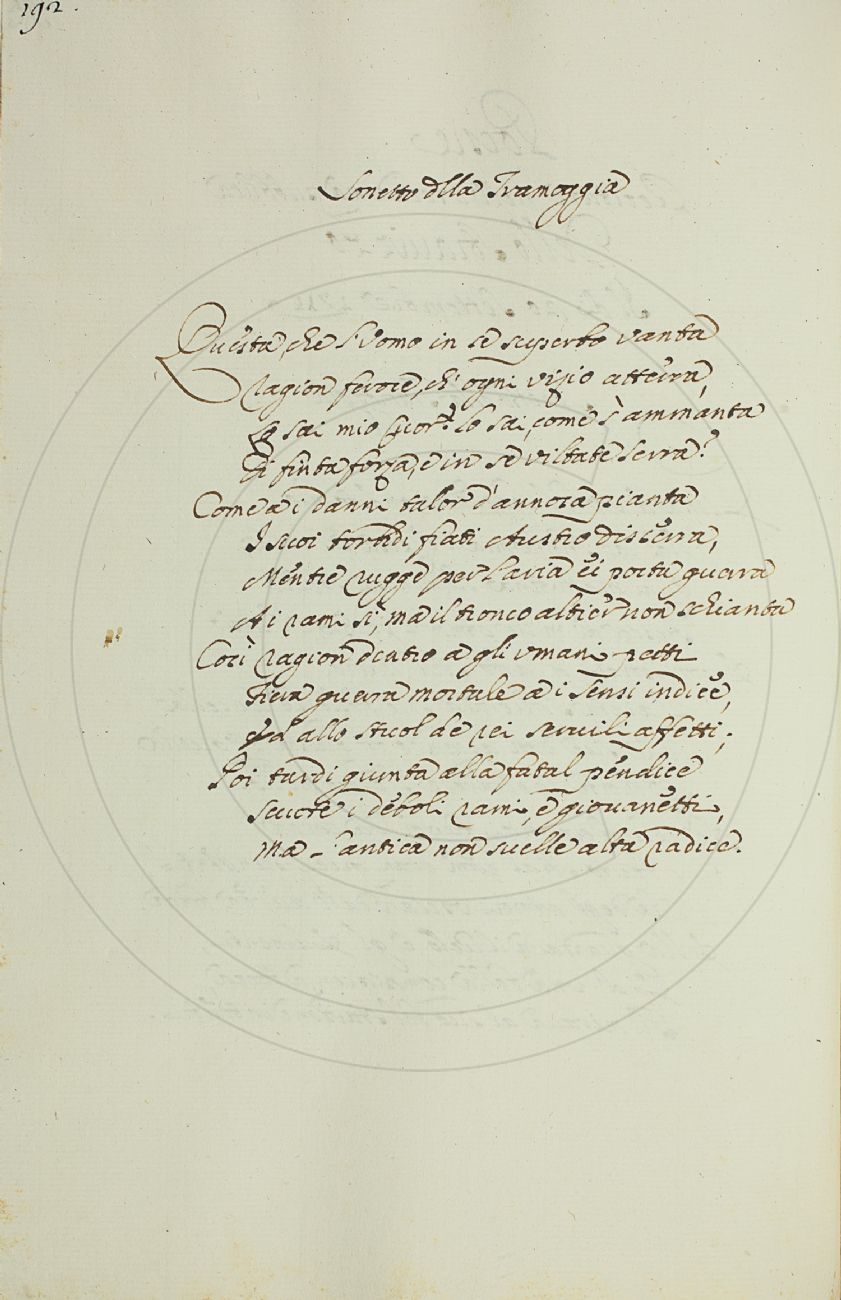 192.
Sonetto della Tramoggia
Questa, che l'Uomo in se superbo vanta
Ragion feroce, ch'ogni vizio atterra,
Tu sai mio Cuor? lo sai, come s'ammanta
Di finta forza, e in se viltate serra?
Come a i danni talor d'annosa pianta
I suoi torbidi fiati Austro disserra,
Mentre rugge per l'aria ei porta guerra
A i rami sì, ma il tronco altier non schianta
Così ragion dentro a gli umani petti
Fiera guerra mortale a i sensi indice,
Ed allo stuol de rei servili affetti;
Poi tardi giunta alla fatal pendice
Scuote i deboli rami, e giovanetti,
Ma l'antica non svelle alta radice.